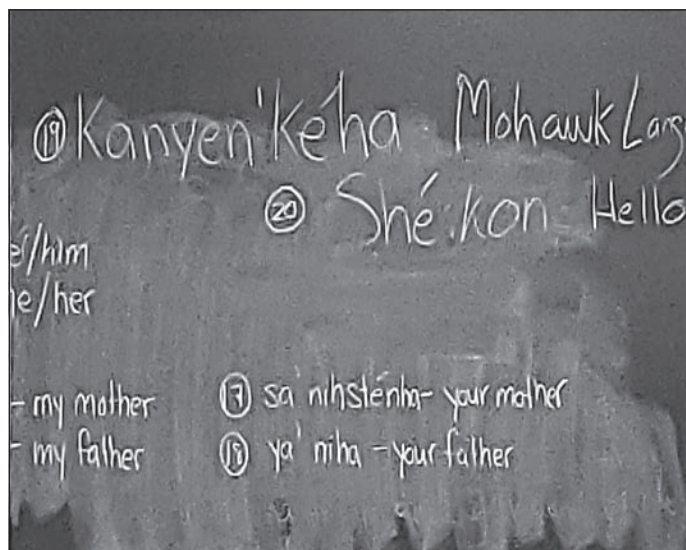 ⑲ Kanyen'kéha Mohawk Lang
⑳ Shé:kon - Hello
/him
/her
- my mother ⑰ sa'nihsténha - your mother
- my father ⑱ ya'niha - your father